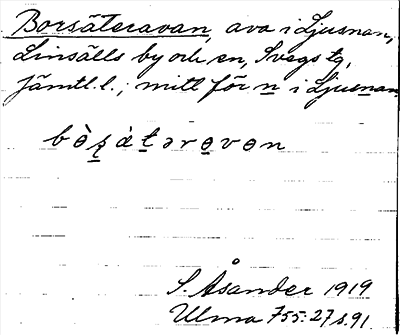 Borsäteravan, ava i Ljusnan,
Linsälls by och sn, Svegs tg,
Jämtl. l.; mitt för n i Ljusnan.
bɵ̀ʂátərɵvɵn
S. Åsander 1919
Ulma 755:27 s. 91.